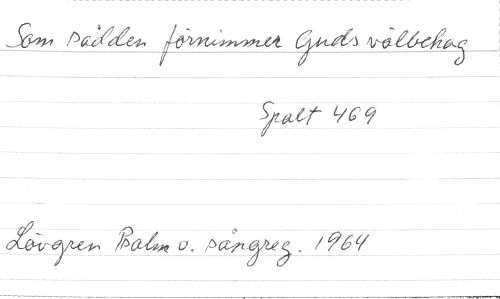 Som sådden förnimmer Guds välbehag
Spalt 469
Lövgren Psalm o. sångreg. 1964